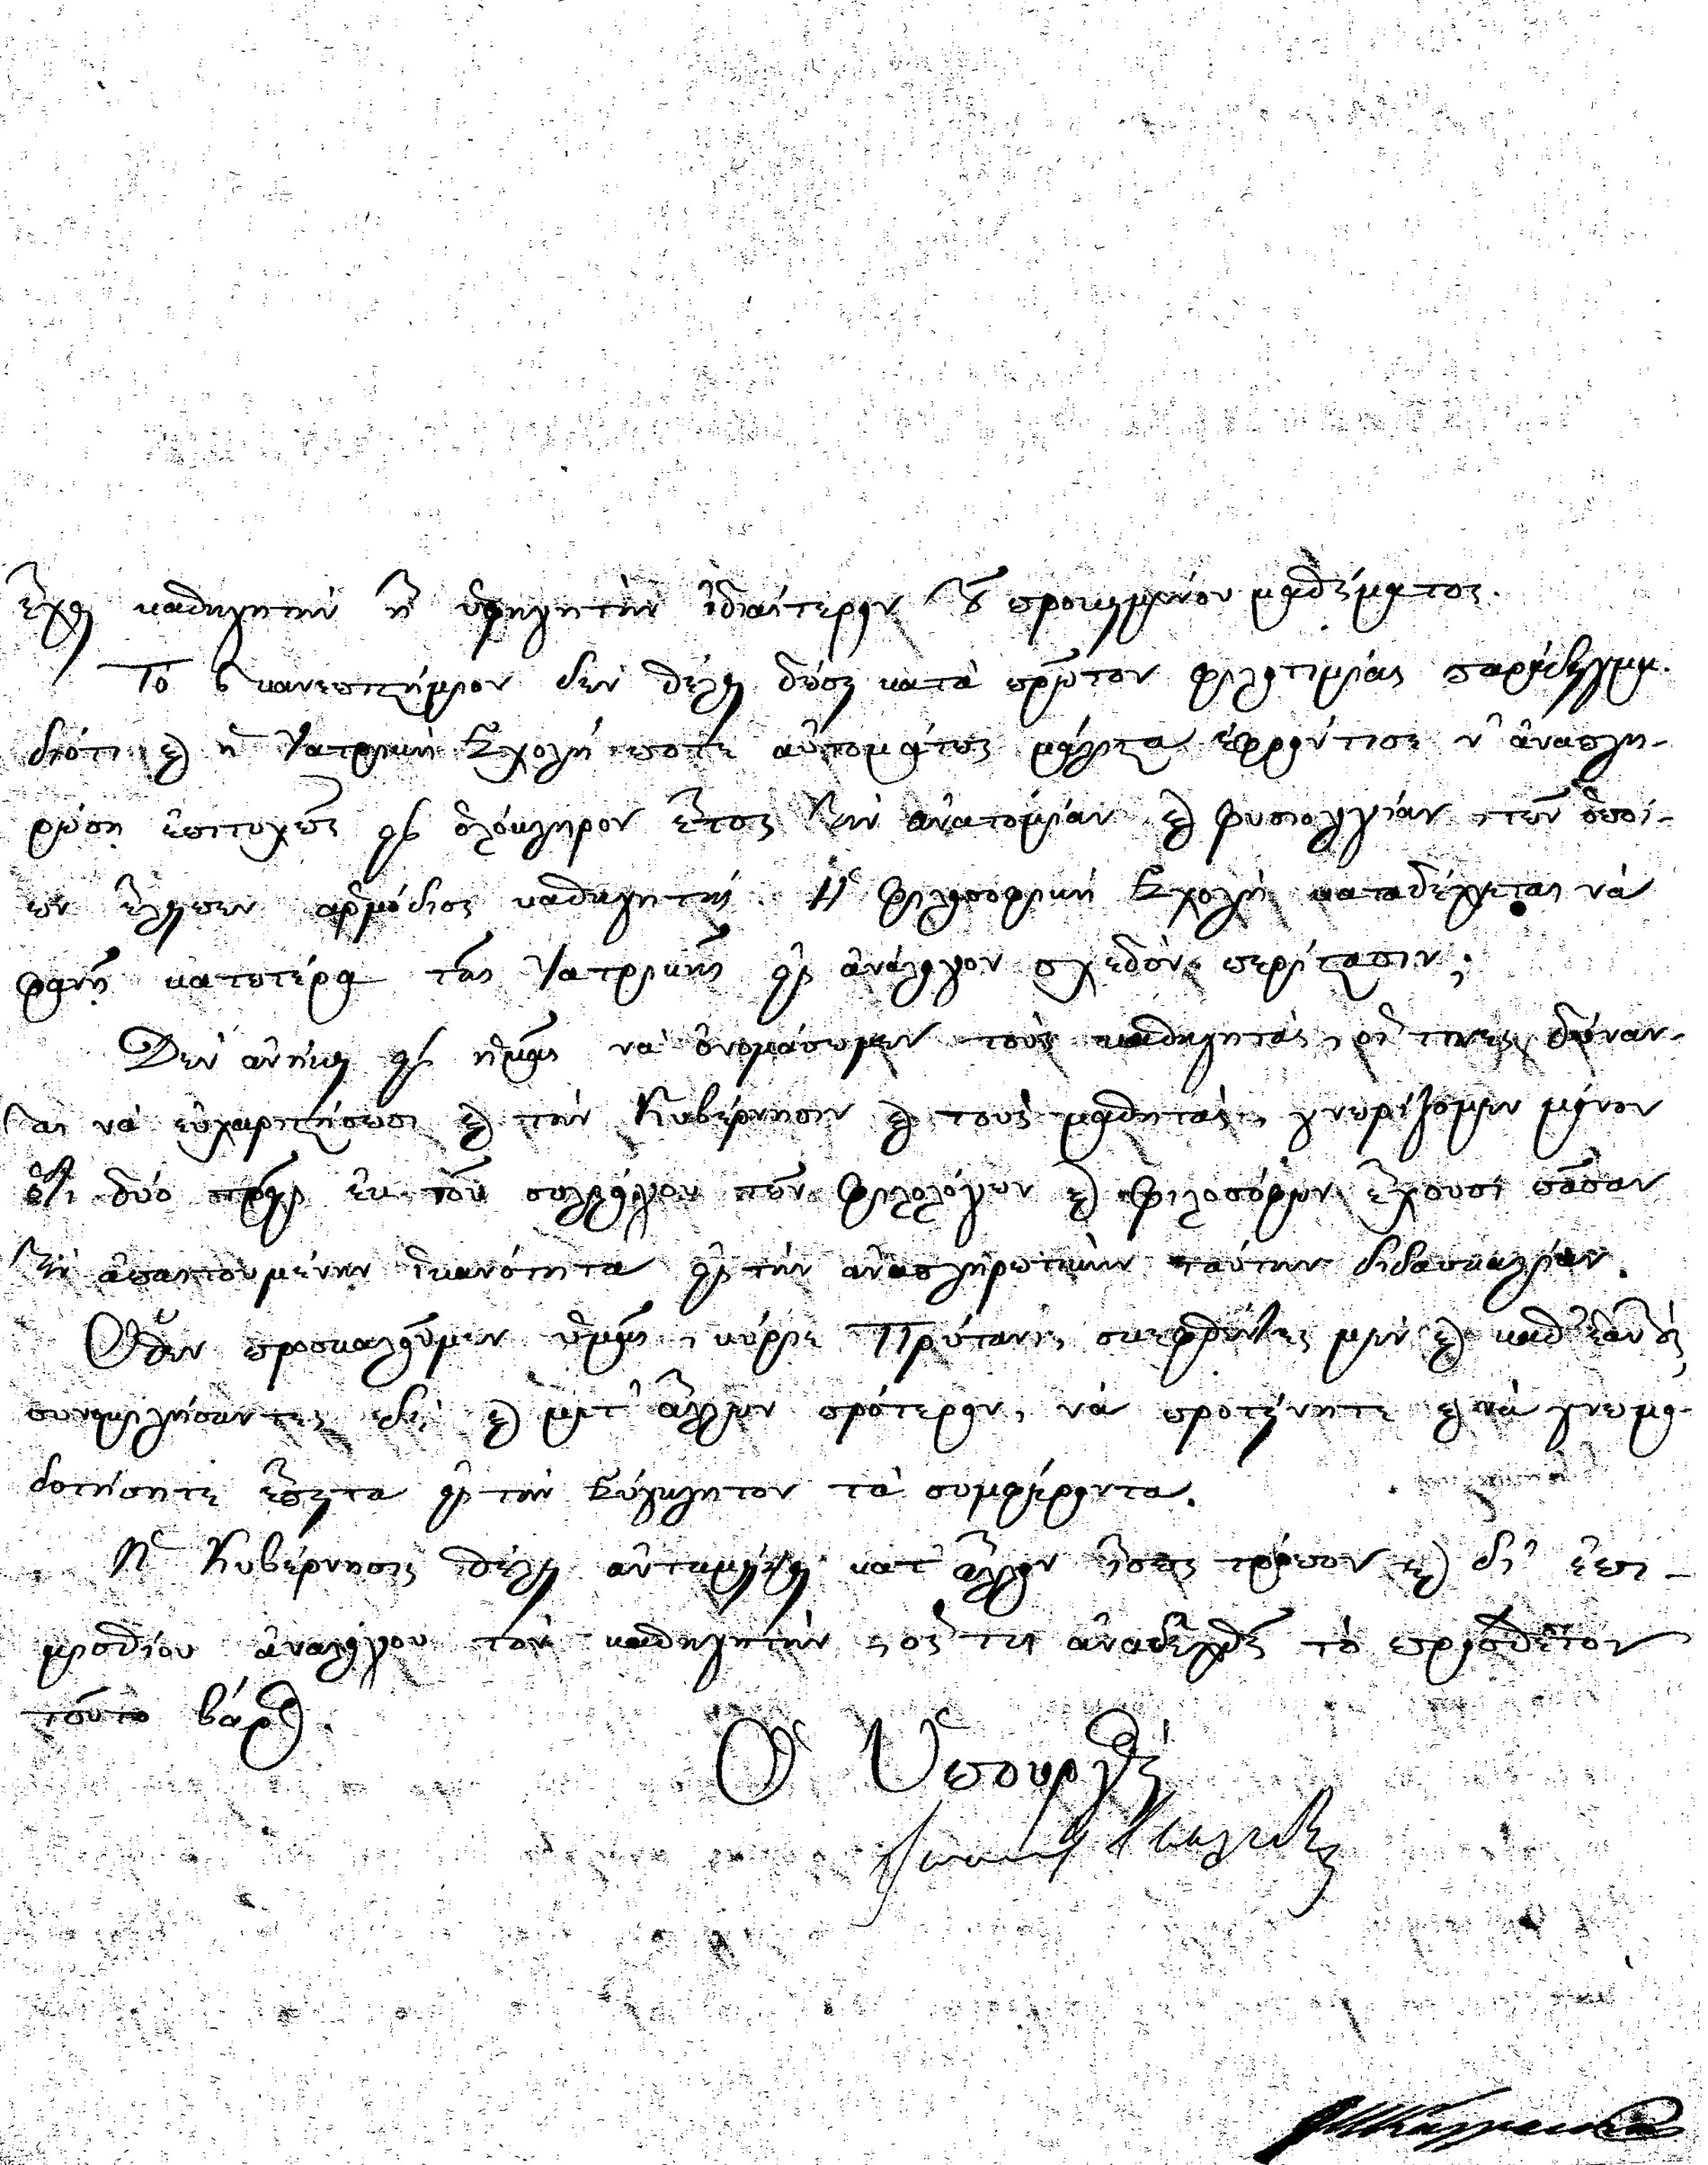 ἔχει καθηγητὴν ἢ ὑφηγητὴν ἰδιαίτερον τοῦ προκειμένου μαθήματος.
Τὸ Πανεπιστήμιον δὲν θέλει δώσει κατὰ πρῶτον φιλοτιμίας παράδειγμα.
διότι καὶ ἡ Ἰατρικὴ Σχολή ποτε αὐτομάτως μάλιστα ἐφρόντισε ν' ἀναπλη-
ρώσῃ ἐπιτυχῶς εἰς ὁλόκληρον ἔτος τὴν ἀνατομίαν καὶ φυσιολογίαν, τῶν ὁποί-
ων ἔλειπεν ἁρμόδιος καθηγητής. Ἡ Φιλοσοφικὴ Σχολὴ καταδέχεται νὰ
φανῇ κατωτέρα τῆς Ἰατρικῆς εἰς ἀνάλογον σχεδὸν περίστασιν;
Δὲν ἀνήκει εἰς ἡμᾶς νὰ ὀνομάσωμεν τοὺς καθηγητάς, οἵ τινες δύναν-
ται νὰ εὐχαριστήσωσι καὶ τὴν Κυβέρνησιν καὶ τοὺς μαθητάς, γνωρίζομεν μόνον
ὅτι δύο τρεῖς ἐκ τοῦ συλλόγου τῶν Φιλολόγων καὶ Φιλοσόφων ἔχουσι πᾶσαν
τὴν ἀπαιτουμένην ἱκανότητα εἰς τὴν ἀναπληρωτικὴν ταύτην διδασκαλίαν.
Ὅθεν προσκαλοῦμεν ὑμᾶς, κύριε Πρύτανι, σκεφθέντες μὲν καὶ καθ' ἑαυτούς,
συνομιλήσαντες δὲ καὶ μετ' ἄλλων πρότερον, νὰ προτείνητε καὶ νὰ γνωμο-
δοτήσητε ἔπειτα εἰς τὴν Σύγκλητον τὰ συμφέροντα.
Ἡ Κυβέρνησις θέλει ἀνταμείψει κατ' ἄλλον ἴσως τρόπον καὶ δι' ἐπι-
μισθίου ἀναλόγου τὸν καθηγητήν, ὅς τις ἀναδεχθῇ τὸ προσθετὸν
τοῦτο βάρος.
Ὁ Ὑπουργός